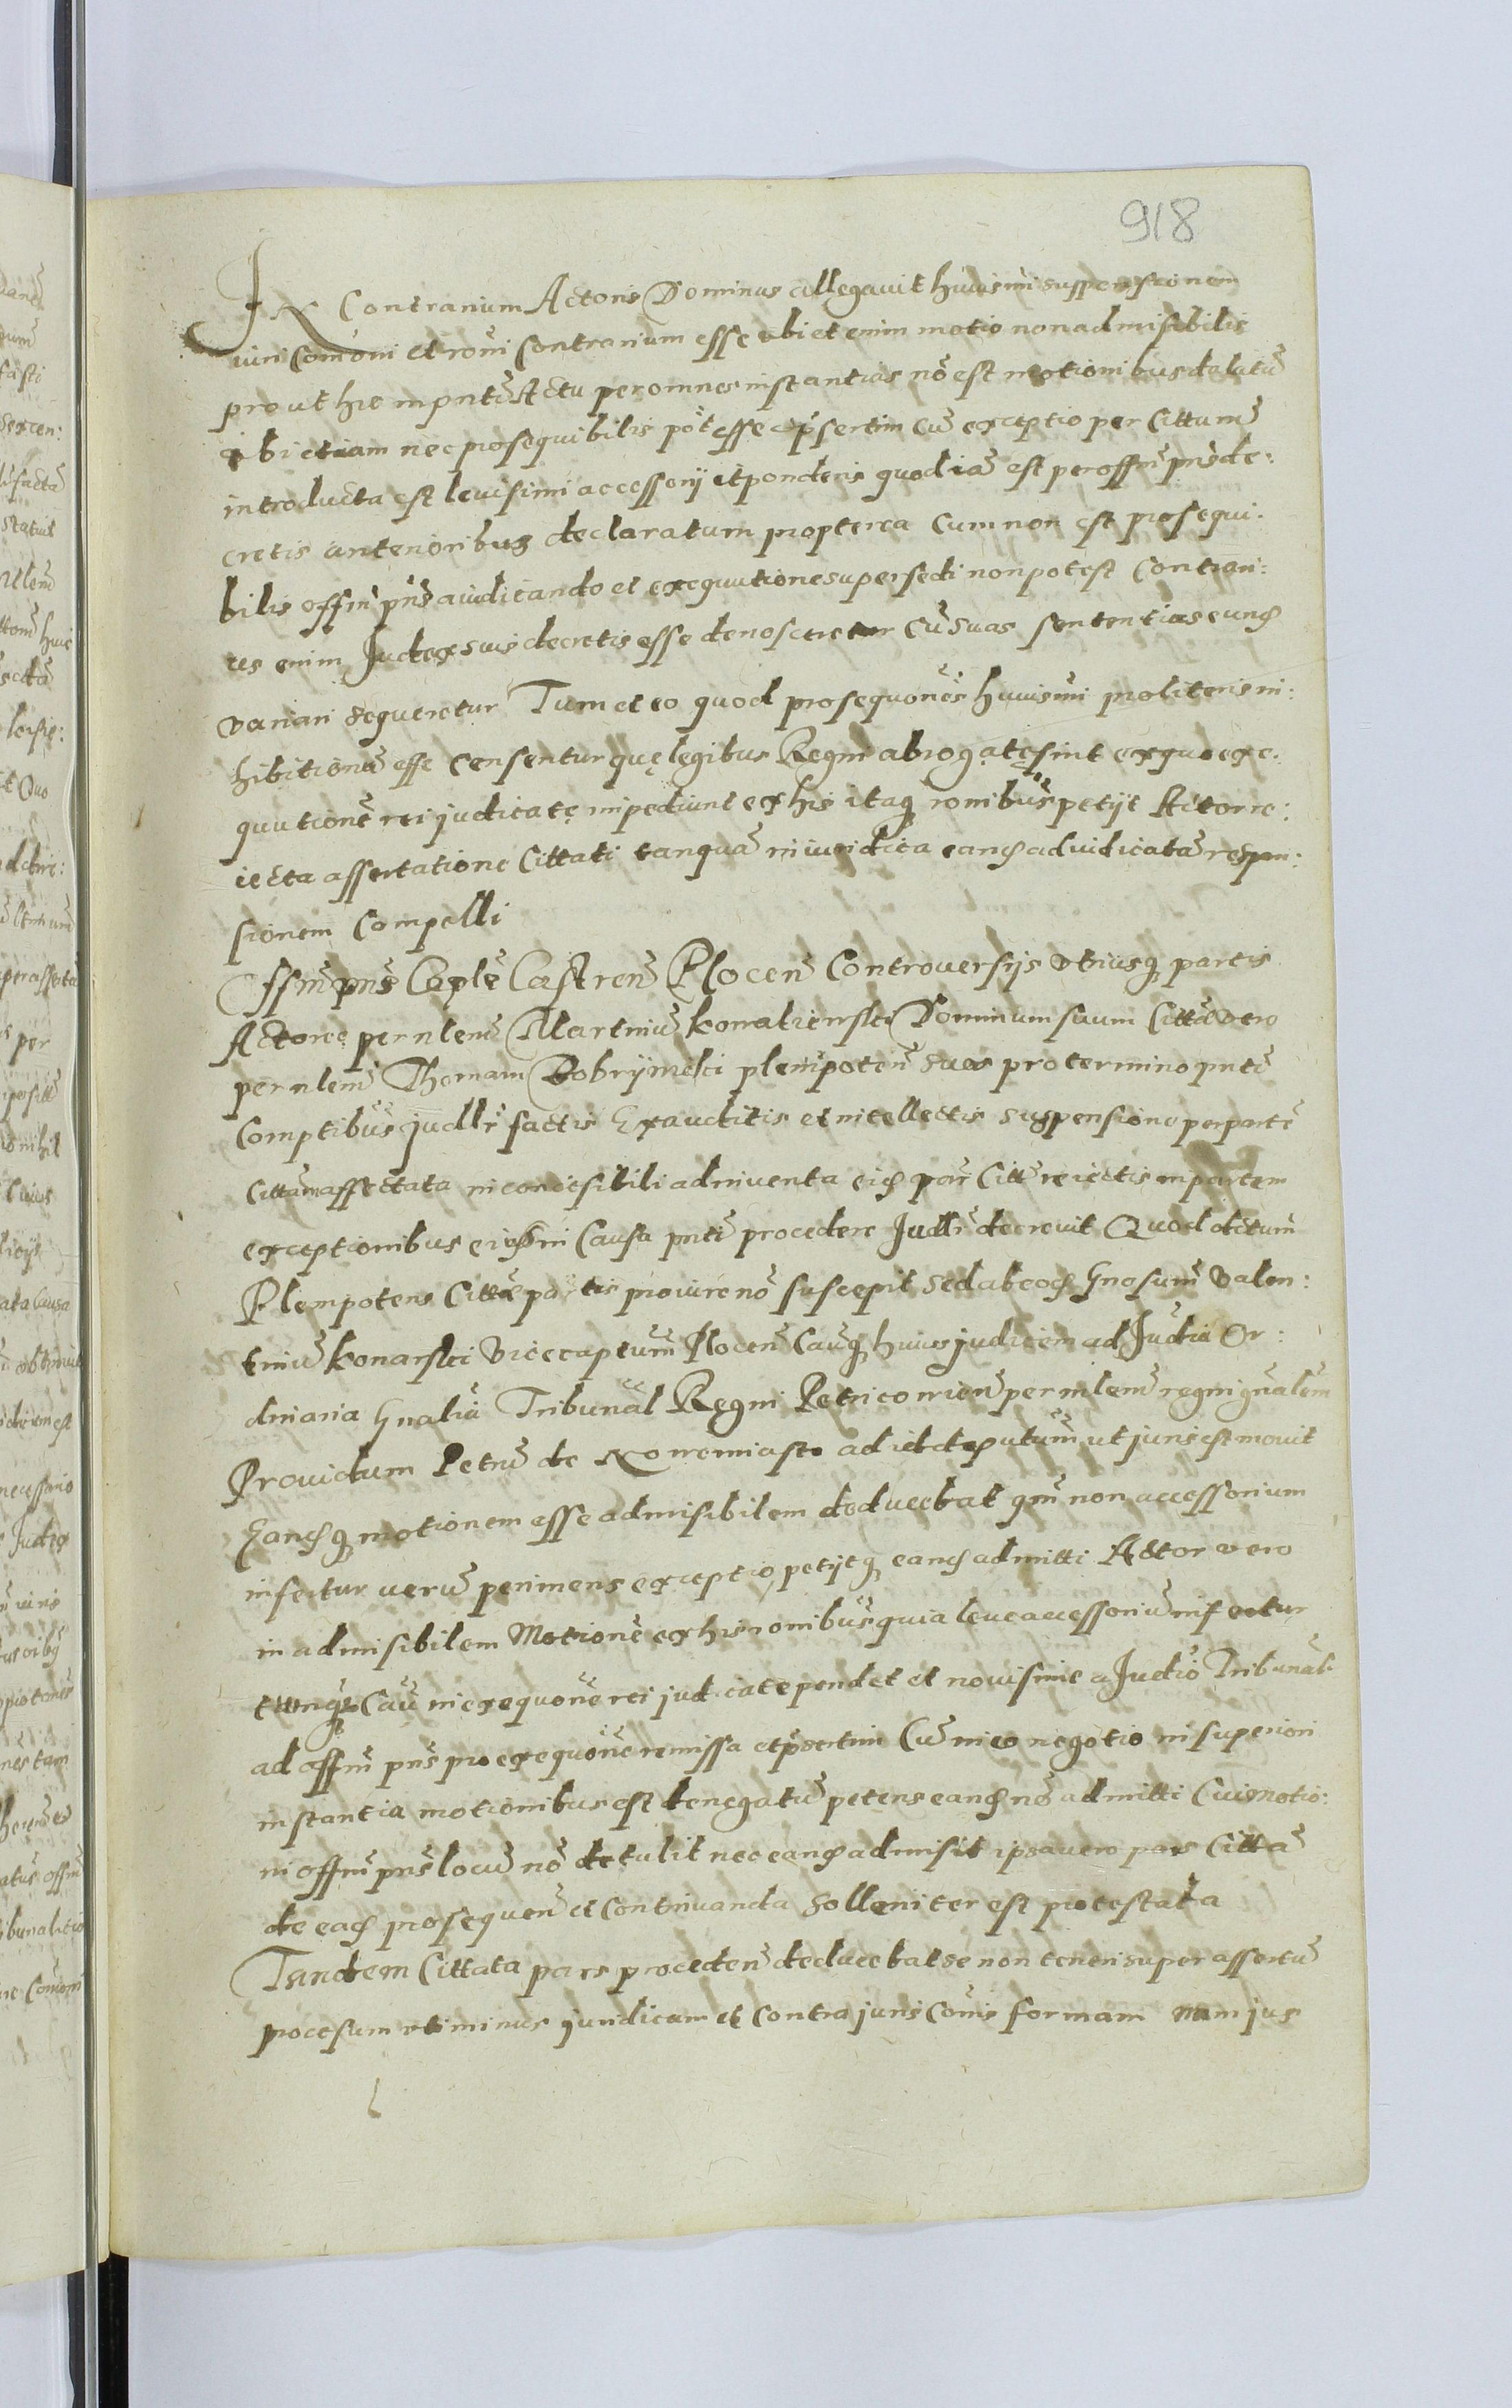 918
In Contrarium Actoris Dominus allegavit huiusmi suspensionem
iuri comōni et rōni Contrarium esse ubi et enim motio non admisibilis
prout hic in pntī Actu per omnes instantias nō est motionibus delatū
ibi etiam nec prosequibilis pōt esse et pṡertim cū exceptio per Cittum̃
introducta est levisimi accessorij et ponderis quod iā est per offm̃ pñs de:
cretis anterioribus declaratum propterea cum non est prosequi:
bilis offm̃ pñs a iudicando et exequutione supersedi non potest Contrari:
us enim Judex suis decretis esse denosceretur cū suas sententias eund
variari sequeretur Tum et eo quod prosequōnes huiusmi pro literis in:
hibitionū esse censentur quę legibus Regni abrogatę sint ex quo exe:
quutionē rei judicatę impediunt ex his itaq rōnibus petijt Actor re:
iecta assertatione Cittati tanquā iniuridica eand ad iudicatā respon:
sionem Compelli
Offm̃ pñs Caple Castren̄ Plocen̄ Controversijs utriusq partis
Actoreę per nlem̄ Martinū Konatienski Dominum suum Cittā vero
per nlem̄ Thomam Dobrijmski plenipoten̄ suos pro termino pntī
Comptibus judlr̄ factis Exauditis et intellectis suspensione per partē
Cittam affectata inconcesibili adinventa eid par Citt reiectis in partem
exceptionibus eid in Causa pntī procedere Judlr̄ decrevit Quod dectum̄
Plenipotens Cittē partis pro iure nō suscepit sed ab eod Gnosum̄ Valen:
tinū Konarski Vicecaptum̄ Plocen̄ Cauq huius judicem ad Judia Or:
dinaria Gnalia Tribunal Regni Petricovien̄ per mlem̄ regni gnalem̄
Providum Petrū de Nowemiasto ad id deputum̄ ut juris est movit
Eandq motionem esse admisibilem deducebat qm̄ non accessorium
infertur verū perimens exceptio petijtq eand admitti Actor vero
inadmisibilem Motionē ex his rōnibus quia leve accessoriū infertur
tunq Cau in exequōne rei judicatę pendet et novisime a Judio Tribunali
ad offm̃ pñs pro exequōne remissa et pṡertim Cū in eo negotio in superiori
instantia motionibus est denegatū petens eand nō admitti Cui motio:
ni offm̃ pñs locū nō detulit nec eand admisit ipsa vero pars Cittā
de ead prosequen̄ et Continuanda solleniter est protestata
Tandem Cittata pars proceden̄ deducebat se non teneri super assertū
procesum uti minus juridicum et Contra juris Cōnis formam nam jus